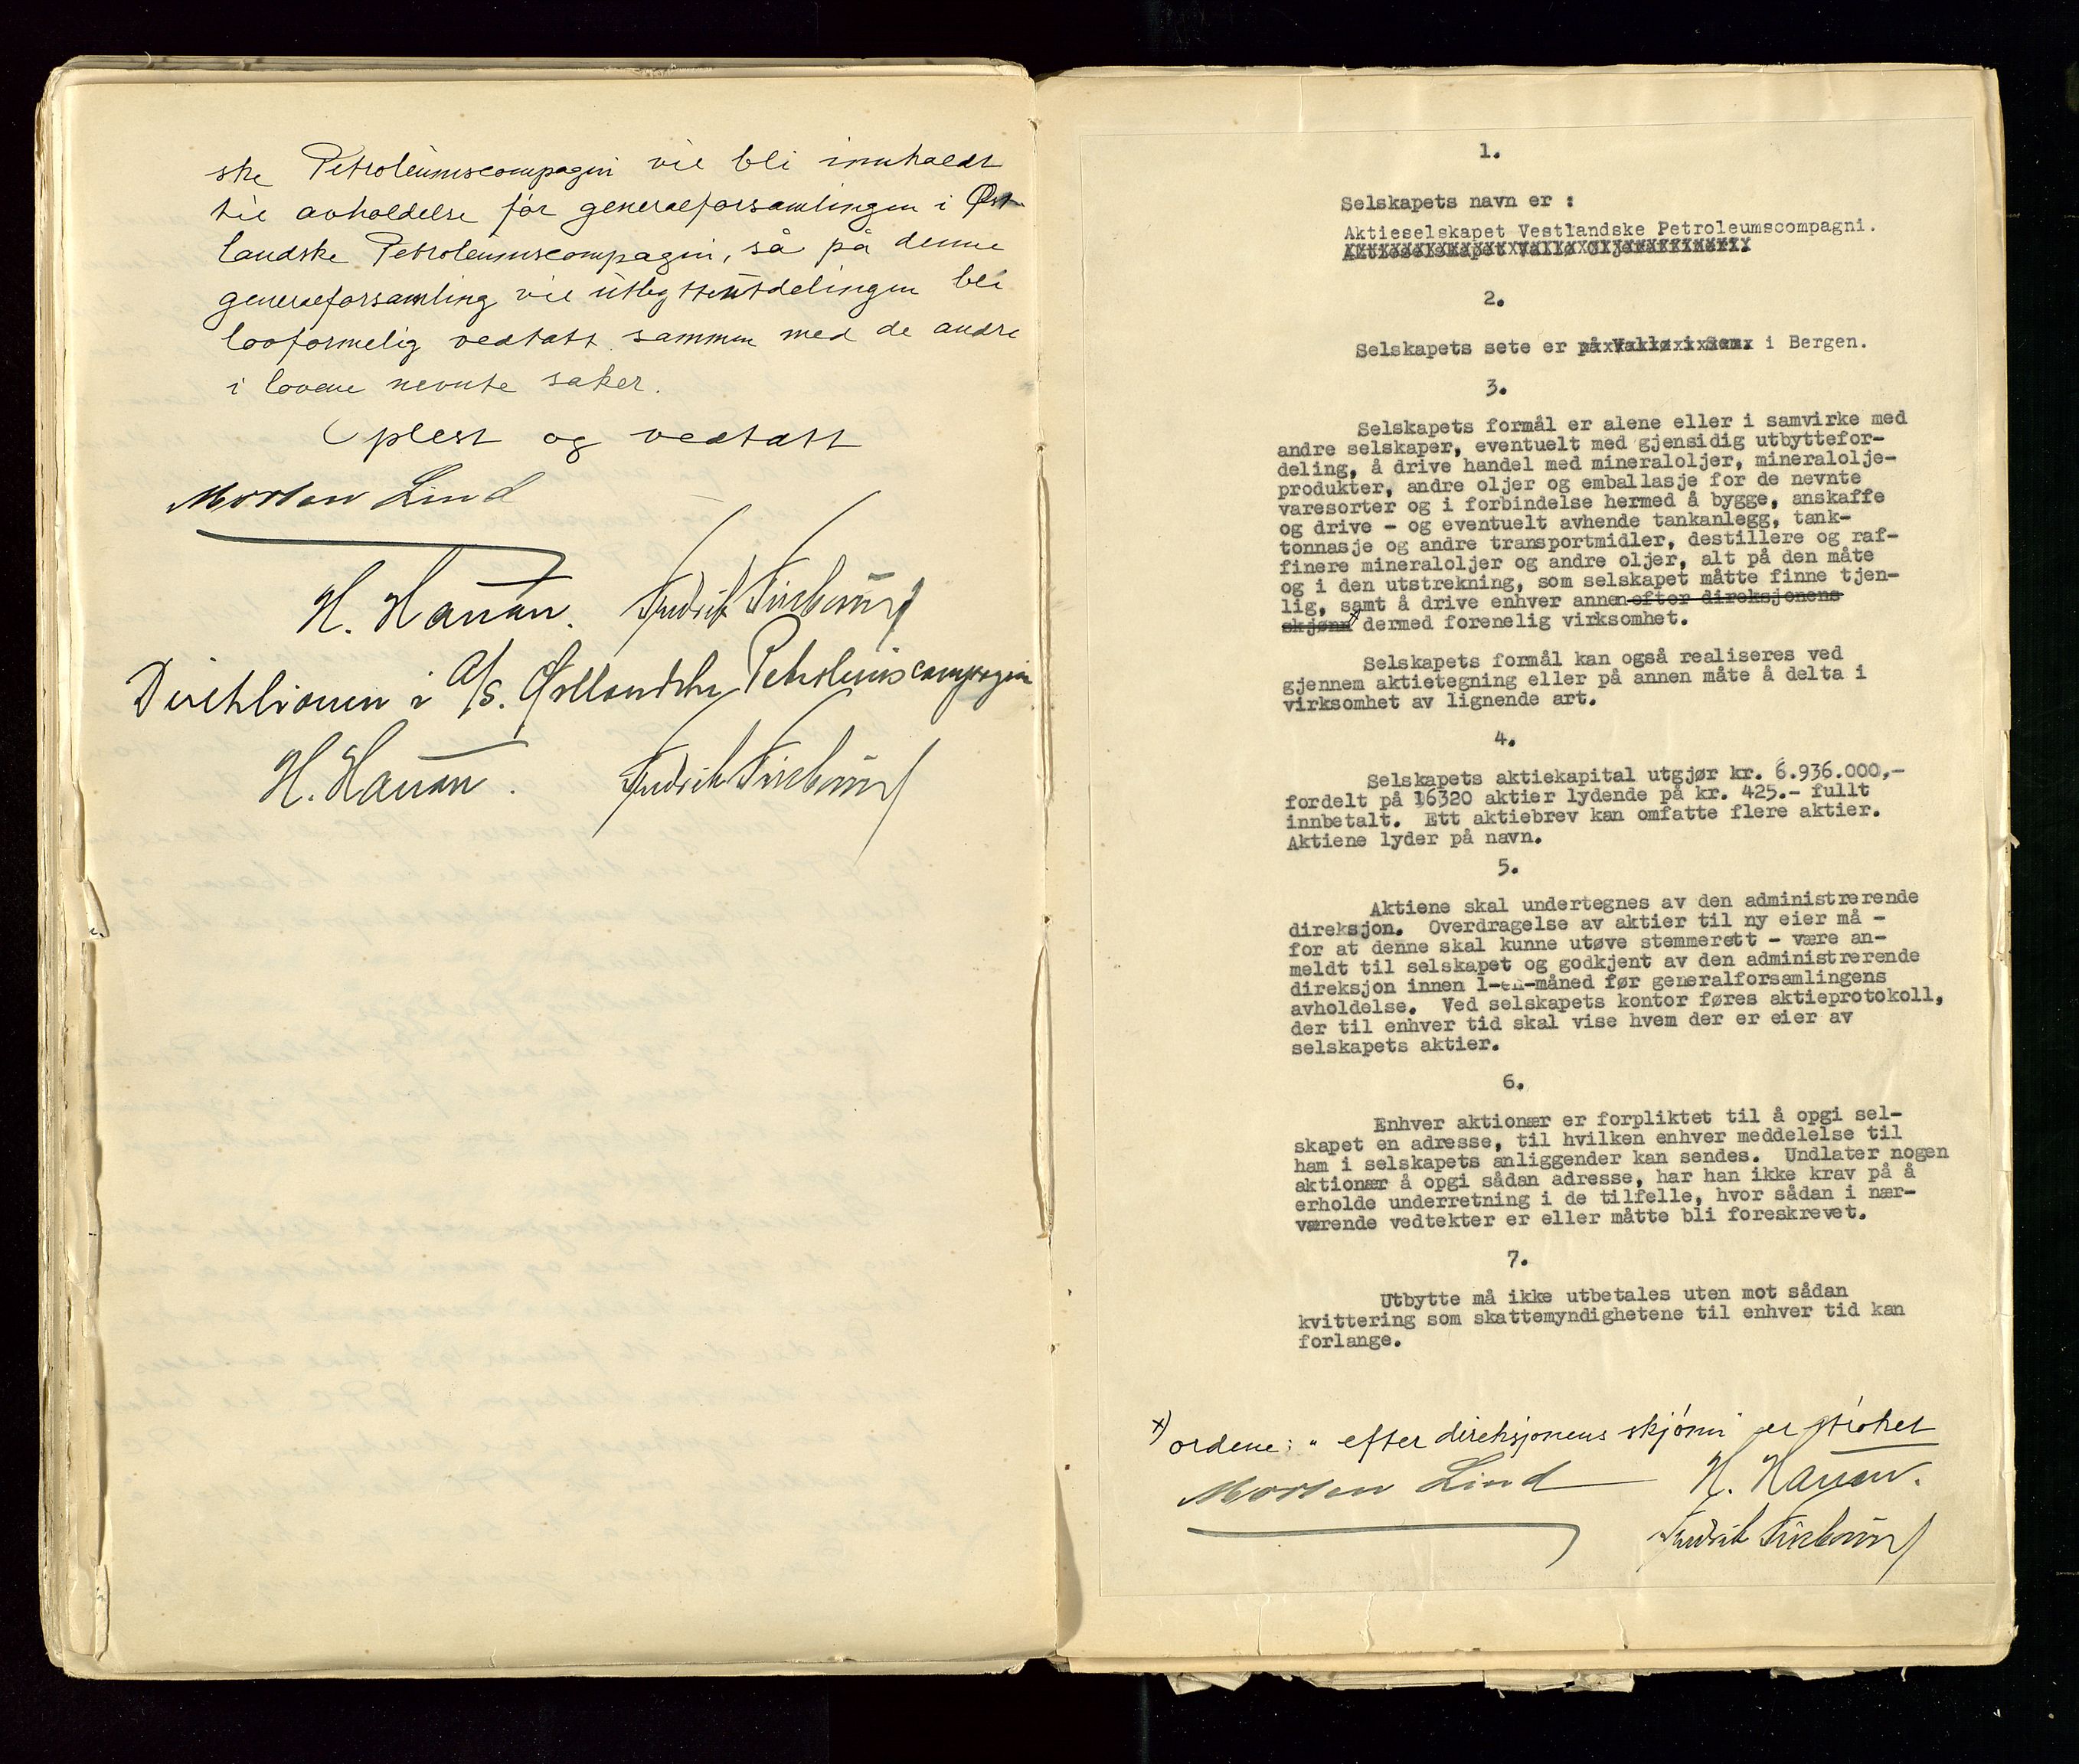 ske Petroleumscompagni vil bli innkaldt
til avholdelse før generalforsamlingen i Øst-
landske Petroleumscompagni, så på denne
generalforsamling vil utbytteutdelingen bli
lovformelig vedtatt sammen med de andre
i lovene nevnte saker.
Oplest og vedtatt
Morten Lind
H. Hauan. Fredrik
Direktionen i A/S. Østlandske Petroleumscompagni
H. Hauan. Fredrik
1.
Selskapets navn er :
Aktieselskapet Vestlandske Petroleumscompagni.
Aktieselskapet Vallø Oljeraffineri.
2.
Selskapets sete er på Vallø i Sem. i Bergen.
3.
Selskapets formål er alene eller i samvirke med
andre selskaper, eventuelt med gjensidig utbyttefor-
deling, å drive handel med mineraloljer, mineralolje-
produkter, andre oljer og emballasje for de nevnte
varesorter og i forbindelse hermed å bygge, anskaffe
og drive - og eventuelt avhende tankanlegg, tank-
tonnasje og andre transportmidler, destillere og raf-
finere mineraloljer og andre oljer, alt på den måte
og i den utstrekning, som selskapet måtte finne tjen-
lig, samt å drive enhver annen efter direksjonens
skjønn x dermed forenelig virksomhet.
Selskapets formål kan også realiseres ved
gjennem aktietegning eller på annen måte å delta i
virksomhet av lignende art.
4.
Selskapets aktiekapital utgjør kr. 6.936.000,-
fordelt på 16320 aktier lydende på kr. 425.- fullt
innbetalt. Ett aktiebrev kan omfatte flere aktier.
Aktiene lyder på navn.
5.
Aktiene skal undertegnes av den administrerende
direksjon. Overdragelse av aktier til ny eier må -
for at denne skal kunne utøve stemmerett - være an-
meldt til selskapet og godkjent av den administrerende
direksjon innen 1-en-måned før generalforsamlingens
avholdelse. Ved selskapets kontor føres aktieprotokoll,
der til enhver tid skal vise hvem der er eier av
selskapets aktier.
6.
Enhver aktionær er forpliktet til å opgi sel-
skapet en adresse, til hvilken enhver meddelelse til
ham i selskapets anliggender kan sendes. Undlater nogen
aktionær å opgi sådan adresse, har han ikke krav på å
erholde underretning i de tilfelle, hvor sådan i nær-
værende vedtekter er eller måtte bli foreskrevet.
7.
Utbytte må ikke utbetales uten mot sådan
kvittering som skattemyndighetene til enhver tid kan
forlange.
x) ordene: "efter direksjonens skjønn" er strøket
Morten Lind H. Hauan.
Fredrik